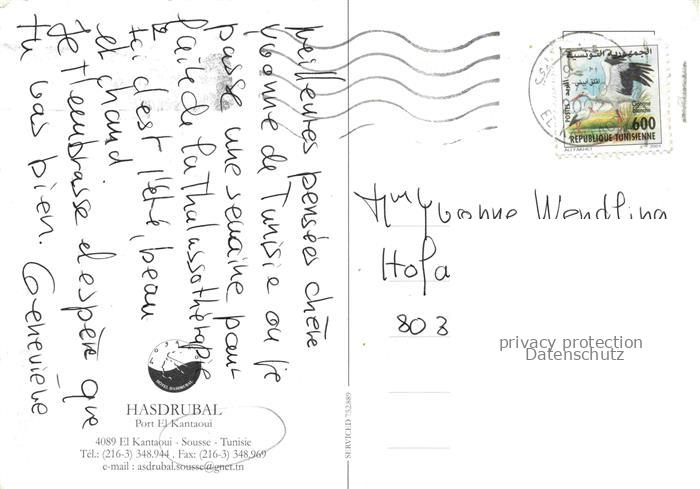 meilleures pensées chère
Yvonne de Tunisie ou je
passe une semaine pour
faire de la Thalassothérapie
Ici c'est l'été, beau
et chaud
Je t'embrasse et espère que
tu vas bien. Geneviève
HOTEL HASDRUBAL
HASDRUBAL
Port El Kantaoui
4089 El Kantaoui - Sousse - Tunisie
Tél.: (216-3) 348.944 . Fax: (216-3) 348.969
e-mail : asdrubal.sousse@gnet.tn
SERVICED 752.889
الجمهورية التونسية
البريد
POSTES
Cigogne
blanche
600
REPUBLIQUE TUNISIENNE
2001
Mme Yvonne Wendling
803
privacy protection
Datenschutz